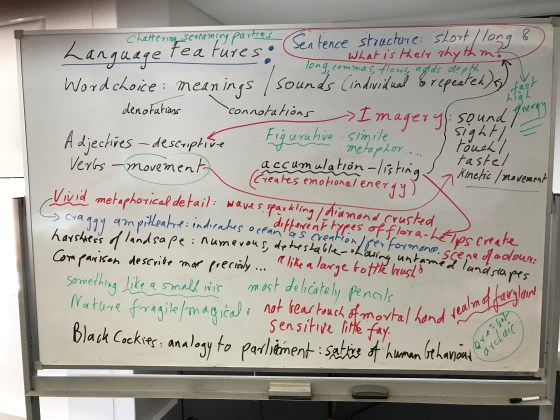 Chattering screaming parties
Language Features:
Sentence structure: short/long &
What is their rhythm?
long, commas, flows, adds depth
fast
high
energy
Word choice: meanings / sounds (individual & repeated)
denotations
connotations
Imagery: sound/
sight/
touch/
taste/
kinetic/movement
Adjectives – descriptive
Figurative: simile
metaphor....
Verbs – movement
accumulation – listing
(creates emotional energy)
Vivid metaphorical detail: waves sparkling/diamond crusted
different types of flora – helps create
scene of colour:
craggy ampitheatre: indicates ocean as creation/performance.
harshness of landsape: numerous, detestable – showing untamed landscapes
Comparison describe more precisely...
"like a large bottle brush"
something like a small iris
most delicately pencils
Nature fragile/magical:
not bear touch of mortal hand
realm of fairyland
sensitive little fay.
archaic
Black Cockies: analogy to parliment: satire of human behaviour